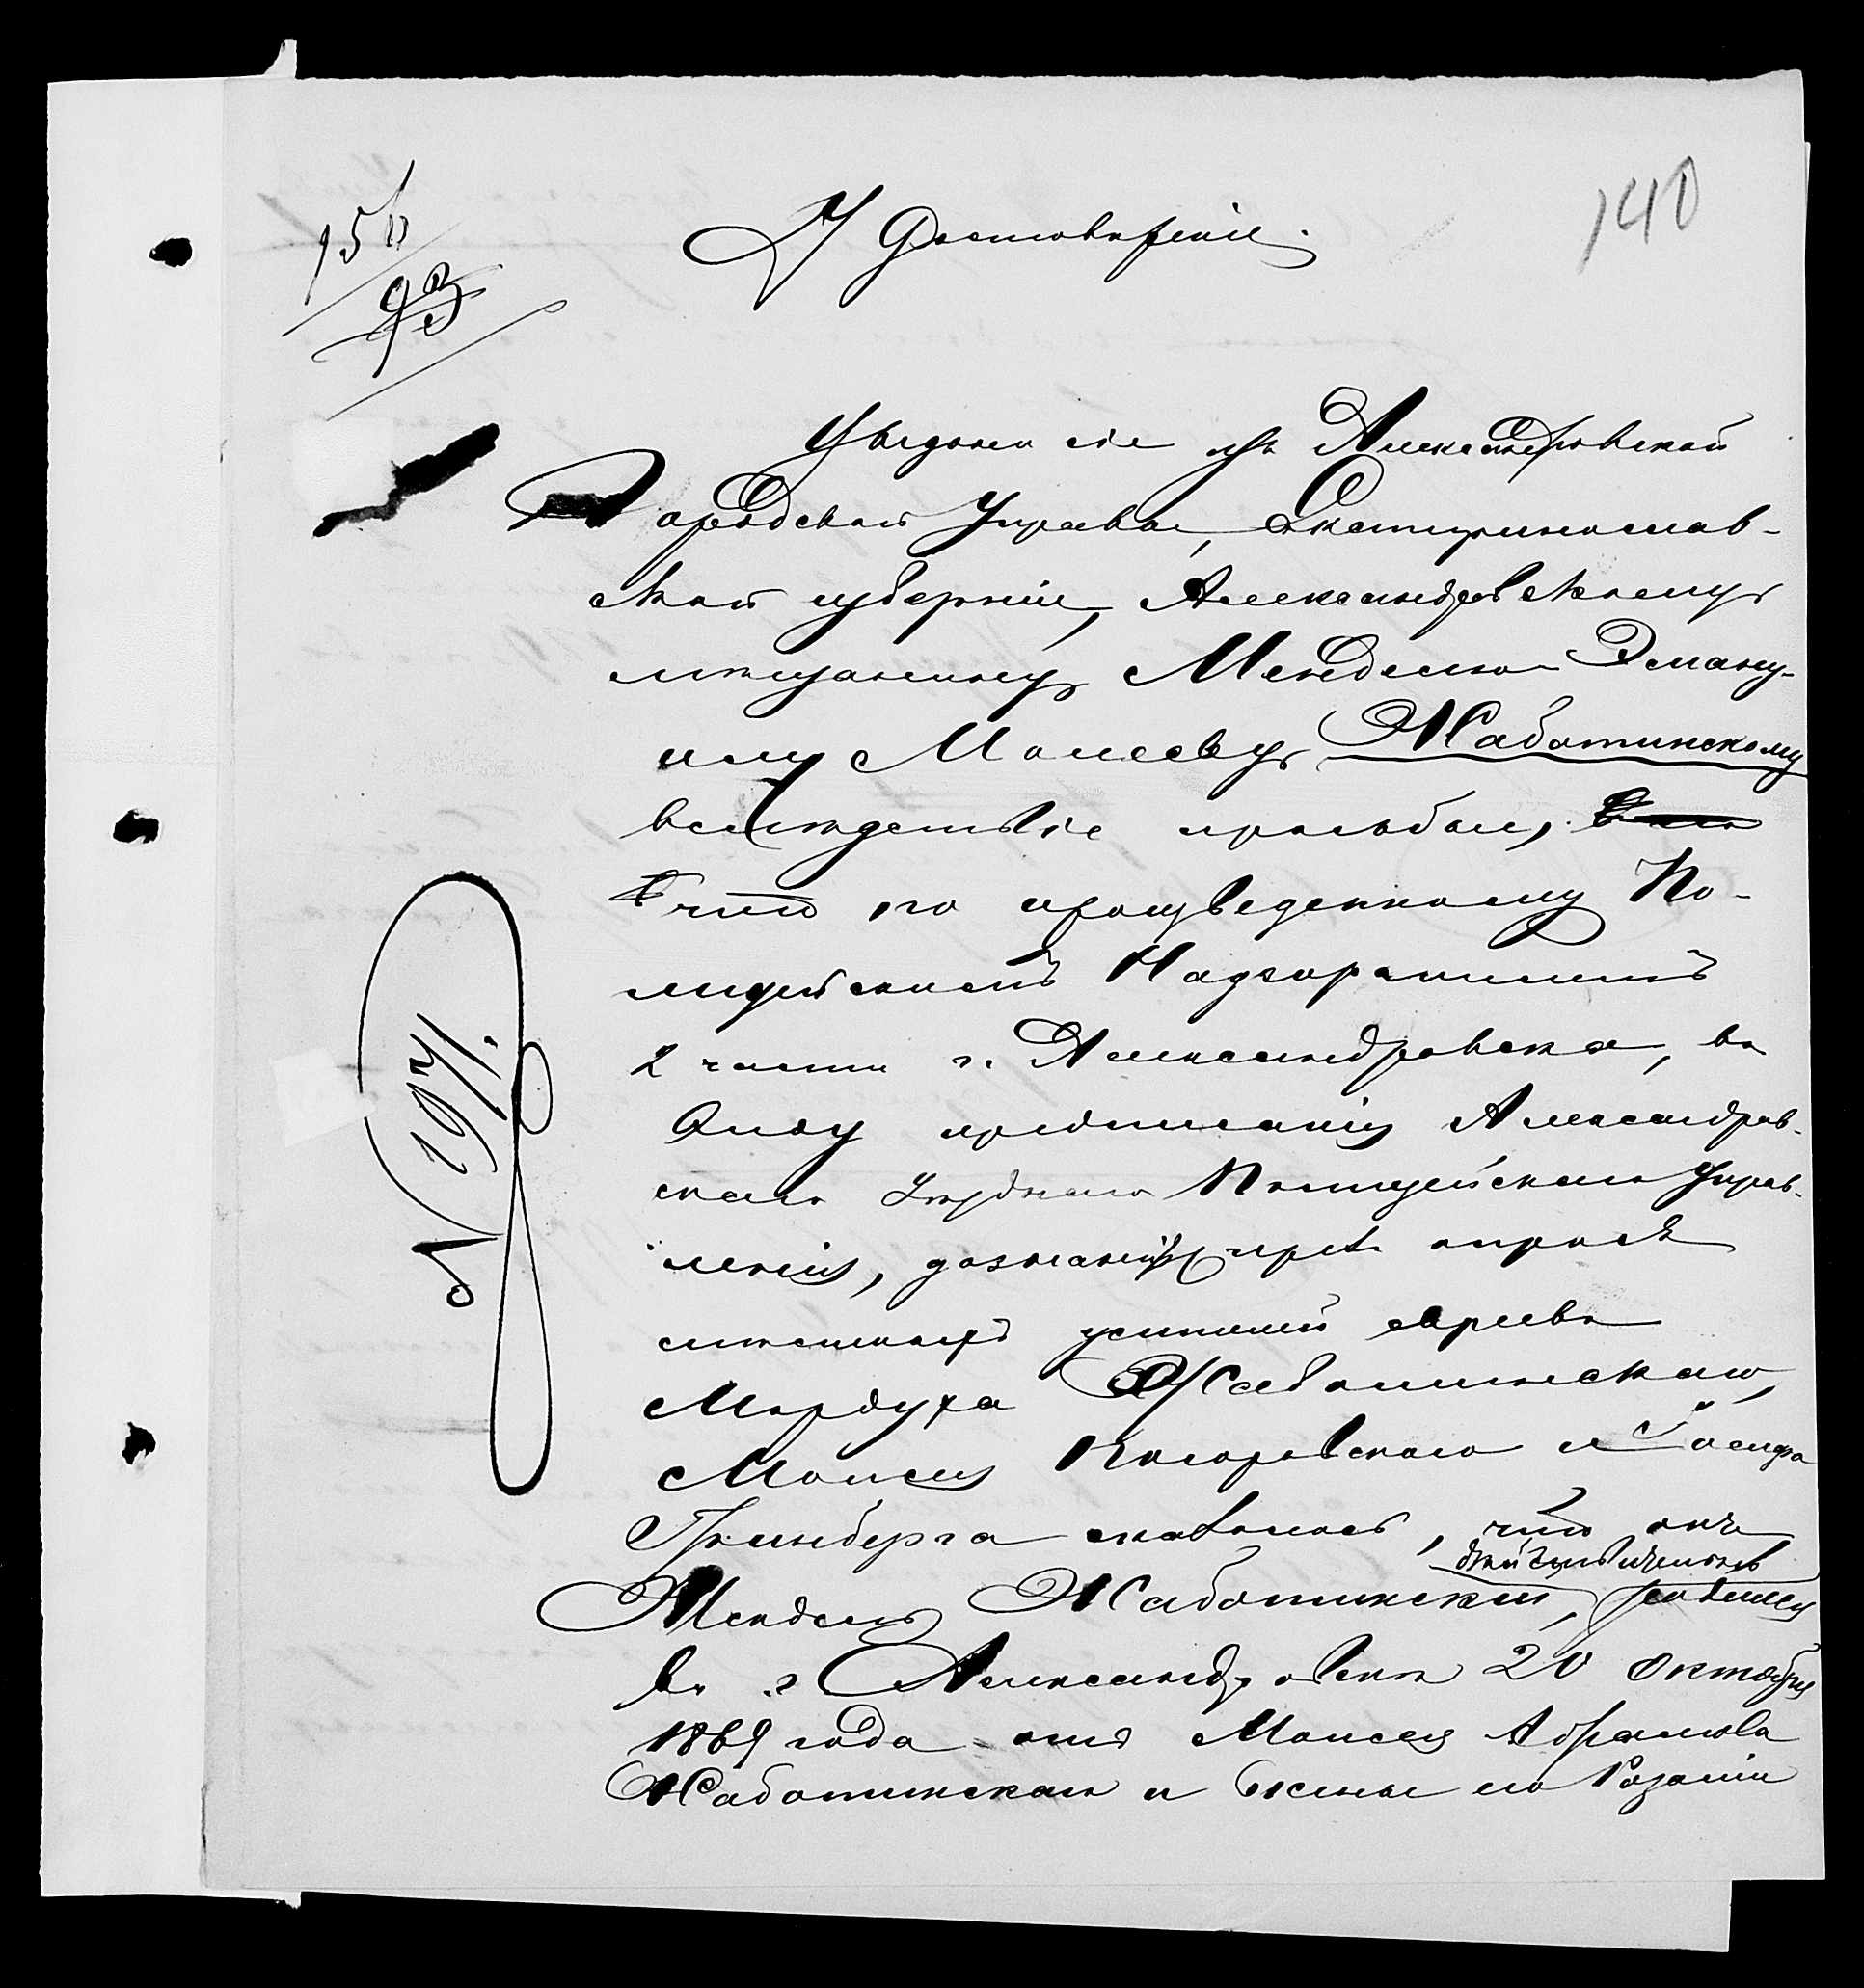 140
15/II
93
Удостовѣреніе.
Выдано сіе изъ Александровской
Городской Управы, Екатеринослав-
ской губерніи, Александровскому
мѣщанину Менделю Эману-
илу Моисееву Жаботинскому
вслѣдствіе просьбы,
что по произведенному По-
лицейскимъ Надзирателемъ
2 части г. Александровска, въ
силу предписанія Александров-
скаго Уѣзднаго Полицейскаго Управ-
ленія, дознанію чрезъ опросъ
мѣстныхъ жителей евреевъ
Мордуха Жаботинскаго,
Моисея Когоровскаго и Іосифа
Гринберга оказалось, что онъ
дѣйствительно
Мендель Жаботинскій, родился
въ г Александровскѣ 20 Октября
1869 года отъ Моисея Абрамова
Жаботинскаго и жены его Розаліи
N 1971.